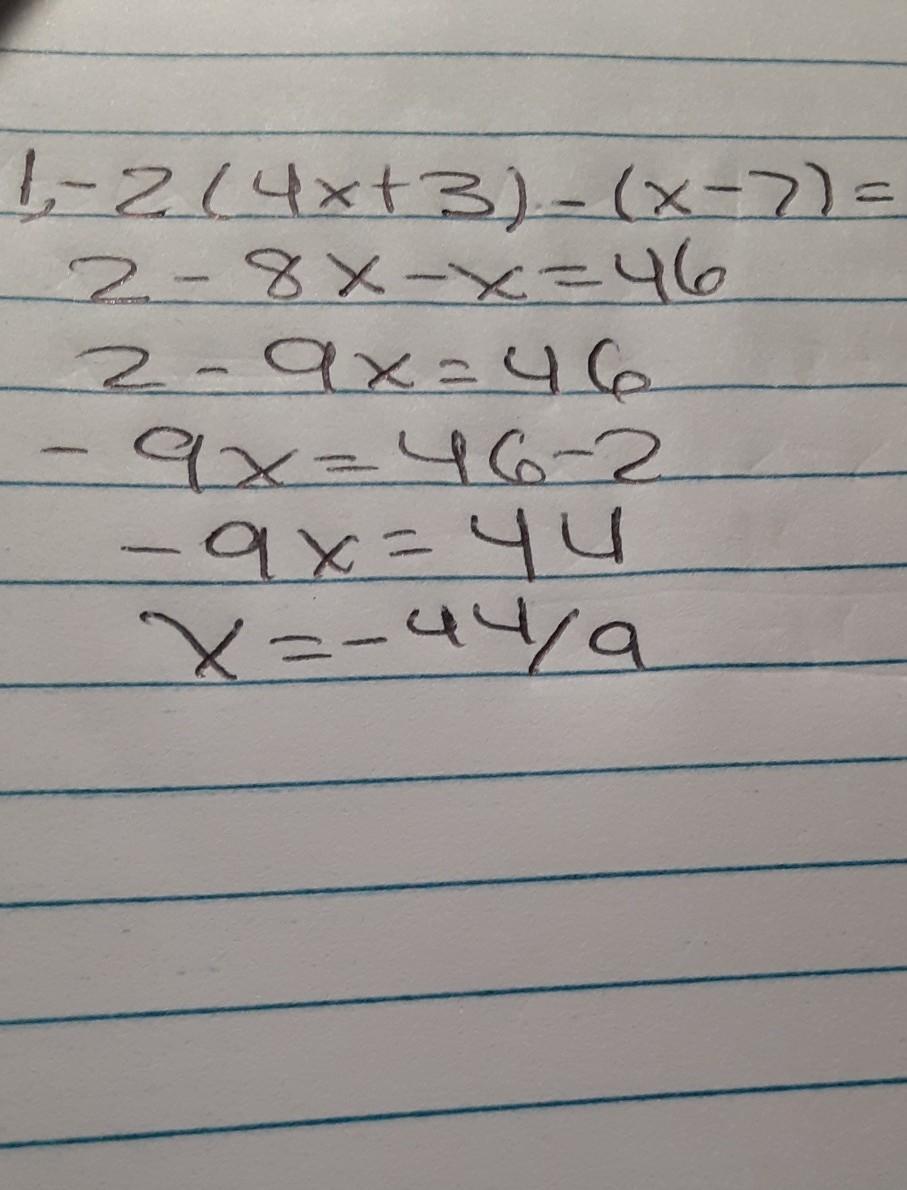 1,-2(4x+3)-(x-7)=
2-8x-x=46
2-9x=46
-9x=46-2
-9x=44
x=-44/9